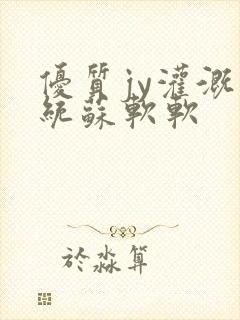 優質jy灌溉
統蘇軟軟
於淼算